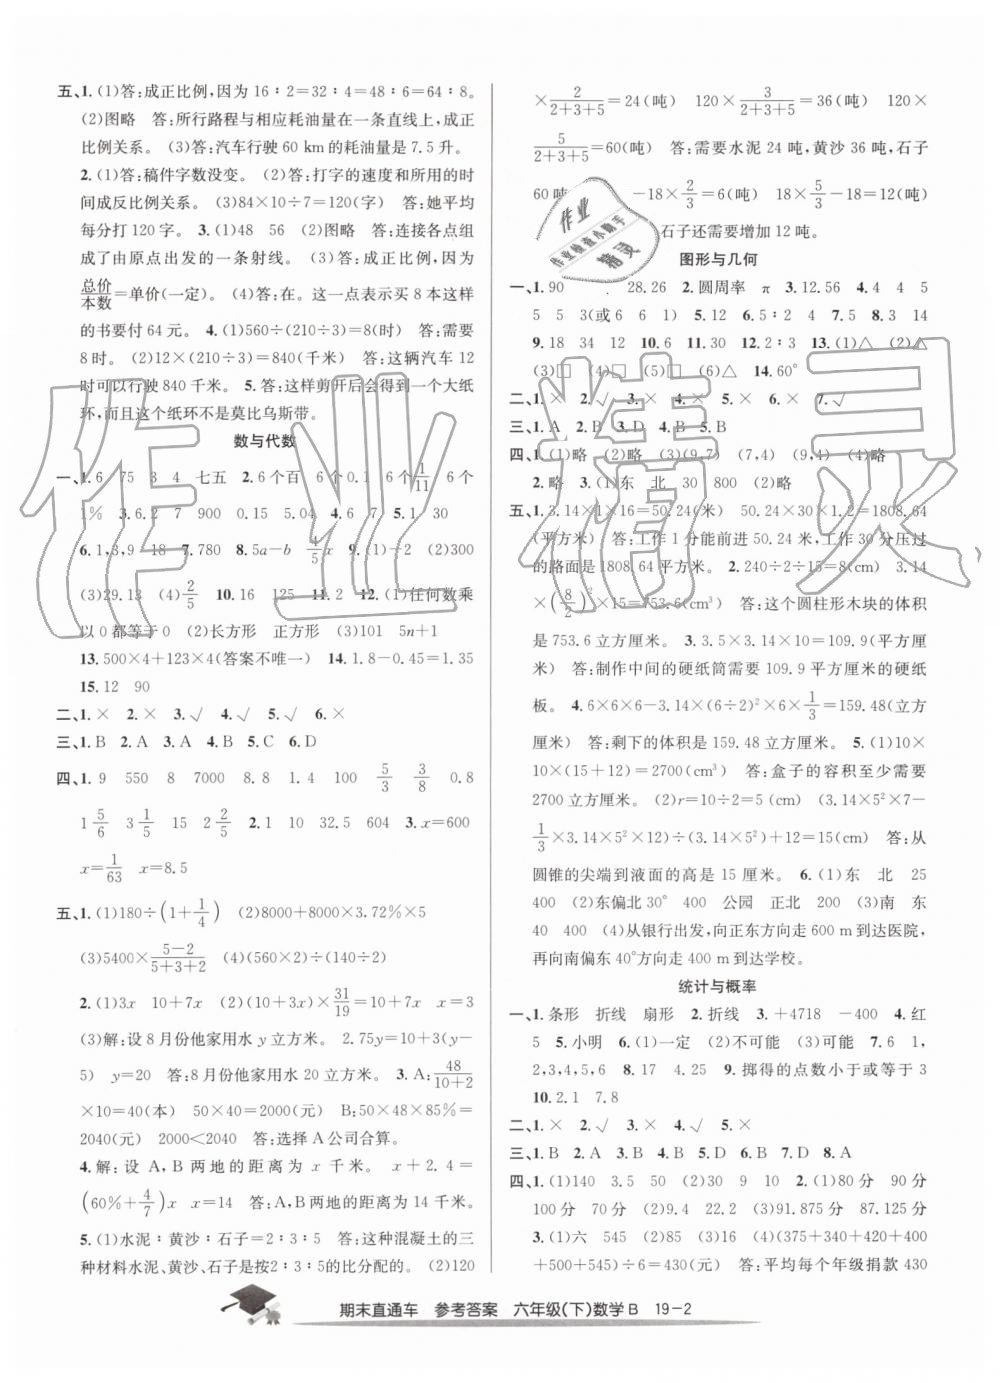 五、1. (1)答:成正比例,因为 16∶2=32∶4=48∶6=64∶8。
(2)图略 答:所行路程与相应耗油量在一条直线上,成正
比例关系。 (3)答:汽车行驶 60 km的耗油量是 7.5 升。
2. (1)答:稿件字数没变。 (2)答:打字的速度和所用的时
间成反比例关系。 (3)84×10÷7=120(字) 答:她平均
每分打 120 字。 3. (1)48 56 (2)图略 答:连接各点组
成了由原点出发的一条射线。 (3)答:成正比例,因为
总价/本数=单价(一定)。 (4)答:在图上描点表示买 8 本这样
的书要付 64 元。 4. (1)560÷(210÷3)=8(时) 答:需要
8时。 (2)12×(210÷3)=840(千米) 答:这辆汽车 12
时可以行驶 840 千米。 5. 答:这样剪开后会得到一个大纸
环,而且这个纸环不是莫比乌斯带。
数与代数
一、1. 6 75 3 4 七五 2. 6个百 6个0.1 6个1/11 6个
1% 3. 6.2 7 900 0.15 5.04 4. 6 7 5. 1 30
6. 1,3,9 18 7. 780 8. 5a-b 4/5x 9. (1)-2 (2)300
(3)29.13 (4)2/5 10. 16 125 11. 2 12. (1)任何数乘
以0都等于0 (2)长方形 正方形 (3)101 5n+1
13. 500×4+123×4(答案不唯一) 14. 1.8-0.45=1.35
15. 12 90
二、1. × 2. × 3. √ 4. √ 5. √ 6. ×
三、1. B 2. A 3. A 4. B 5. C 6. D
四、1. 9 550 8 7000 8.8 1.4 100 5/3 3/8 0.8
1 5/6 3 1/5 15 2 2/5 2. 1 10 32.5 604 3. x=600
x=1/63 x=8.5
五、1. (1)180÷(1+1/4) (2)8000+8000×3.72%×5
(3)5400×(5-2)/(5+3+2) (4)(560×2)÷(140÷2)
2. (1)3x 10+7x (2)(10+7x)×31/19=10+7x x=3
(3)解:设 8 月份他家用水 y 立方米。 2.75y=10+3(y-
5) y=20 答:8月份他家用水 20 立方米。 3. A:48/(10+2)
×10=40(本) 50×40=2000(元) B:50×48×85%=
2040(元) 2000<2040 答:选择 A 公司合算。
4. 解:设 A,B 两地的距离为 x 千米。 x+2.4=
(60%+4/7)x x=14 答:A,B两地的距离为 14 千米。
5. (1)水泥∶黄沙∶石子=2∶3∶5 答:这种混凝土的三
种材料水泥、黄沙、石子是按2∶3∶5的比分配的。 (2)120
×2/(2+3+5)=24(吨) 120×3/(2+3+5)=36(吨) 120×
5/(2+3+5)=60(吨) 答:需要水泥 24 吨,黄沙 36 吨,石子
60 吨 -18×2/3=6(吨) 18×5/3-18=12(吨)
石子还需要增加 12 吨。
图形与几何
一、1. 90 28.26 2. 圆周率 π 3. 12.56 4. 4 4 5
5 5 3(或6 6 1) 5. 12 6. 5∶2 4 7. 5 8. 3 14
9. 18 34 12 10. 6 11. 30 12. 2∶3 13. (1)△ (2)△
(3)□ (4)□ (5)□ (6)△ 14. 60°
二、1. × 2. √ 3. × 4. × 5. × 6. × 7. √
三、1. A 2. B 3. D 4. B 5. B
四、1. (1)略 (2)略 (3)(9,7) (7,4) (9,4) (4)略
2. 略 3. (1)东 北 30 800 (2)略
五、1. 3.14×1×16=50.24(米) 50.24×30×1.2=1808.64
(平方米) 答:工作1分能前进 50.24 米,工作 30 分压过
的路面是 1808.64 平方米。 2. 240÷2÷15=8(cm) 3.14
×(8/2)²×15=753.6(cm³) 答:这个圆柱形木块的体积
是 753.6 立方厘米。 3. 3.5×3.14×10=109.9(平方厘
米) 答:制作中间的硬纸筒需要 109.9 平方厘米的硬纸
板。 4. 6×6×6-3.14×(6÷2)²×6×1/3=159.48(立方
厘米) 答:剩下的体积是 159.48 立方厘米。 5. (1)10×
10×(15+12)=2700(cm³) 答:盒子的容积至少需要
2700 立方厘米。 (2)r=10÷2=5(cm) (3.14×5²×7-
1/3×3.14×5²×12)÷(3.14×5²)+12=15(cm) 答:从
圆锥的尖端到液面的高是 15 厘米。 6. (1)东 北 25
400 (2)东偏北30° 400 公园 正北 200 (3)南 东
40 400 (4)从银行出发,向正东方向走 600 m到达医院,
再向南偏东 40°方向走 400 m到达学校。
统计与概率
一、1. 条形 折线 扇形 2. 折线 3. +4718 -400 4. 红
5 5. 小明 6. (1)一定 (2)不可能 (3)可能 7. 6 1,
2,3,4,5,6 8. 17 4.25 9. 掷得的点数小于或等于 3
10. 2.1 7.8
二、1. × 2. √ 3. × 4. √ 5. ×
三、1. B 2. A 3. C 4. A 5. B 6. C 7. D 8. A
四、1. (1)140 3.5 50 (2)30 9 10 2. (1)80分 90分
100分 70分 (2)9.4 (3)91.875分 87.125分
3. (1)六 545 (2)85 (3)16 (4)(375+340+420+400
+500+545)÷6=430(元) 答:平均每个年级捐款 430
期末直通车 参考答案 六年级(下)数学B 19-2
作业精灵
作业
作业检查小助手
精灵